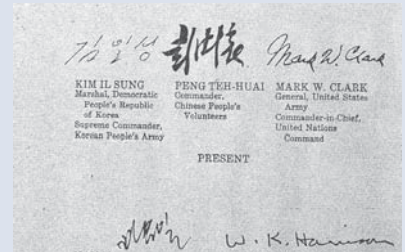 김일성 彭德懷 Mark W. Clark
KIM IL SUNG
Marshal, Democratic
People's Republic
of Korea
Supreme Commander,
Korean People's Army
PENG TEH-HUAI
Commander,
Chinese People's
Volunteers
MARK W. CLARK
General, United States
Army
Commander-in-Chief,
United Nations
Command
PRESENT
W. K. Harrison